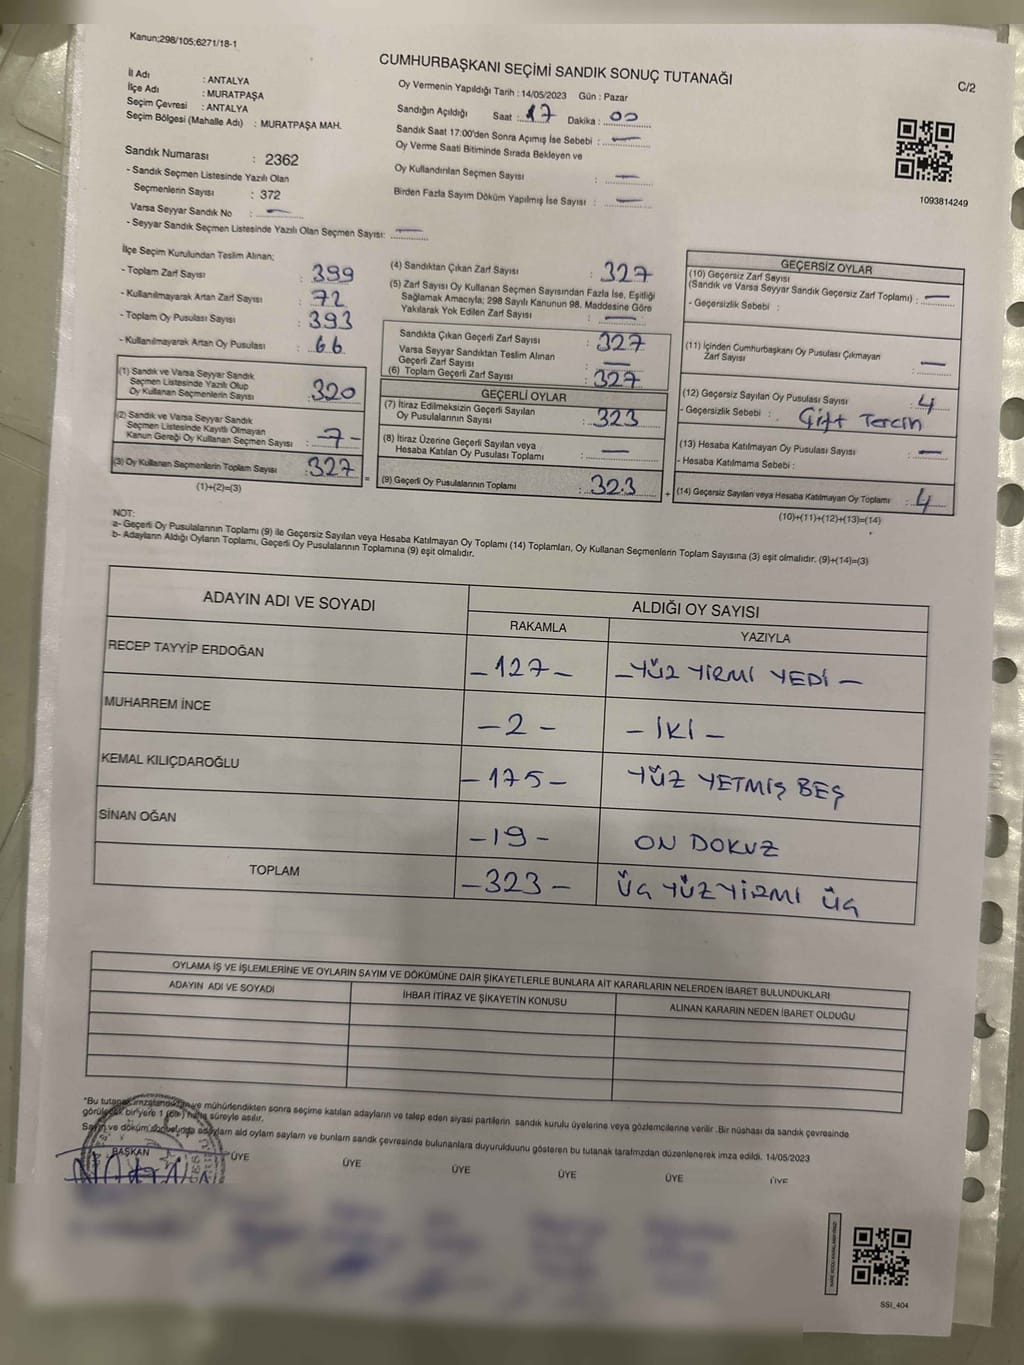 Kanun;298/105;6271/18-1
CUMHURBAŞKANI SEÇİMİ SANDIK SONUÇ TUTANAĞI
C/2
İl Adı : ANTALYA
İlçe Adı : MURATPAŞA
Seçim Çevresi : ANTALYA
Seçim Bölgesi (Mahalle Adı) : MURATPAŞA MAH.
Sandık Numarası : 2362
- Sandık Seçmen Listesinde Yazılı Olan
Seçmenlerin Sayısı : 372
Varsa Seyyar Sandık No : —
- Seyyar Sandık Seçmen Listesinde Yazılı Olan Seçmen Sayısı: —
Oy Vermenin Yapıldığı Tarih : 14/05/2023 Gün : Pazar
Sandığın Açıldığı Saat : 17 Dakika : 00
Sandık Saat 17:00'den Sonra Açımış İse Sebebi : —
Oy Verme Saati Bitiminde Sırada Bekleyen ve
Oy Kullandırılan Seçmen Sayısı : —
Birden Fazla Sayım Döküm Yapılmış İse Sayısı : —
1093814249
İlçe Seçim Kurulundan Teslim Alınan;
- Toplam Zarf Sayısı : 399
- Kullanılmayarak Artan Zarf Sayısı : 72
- Toplam Oy Pusulası Sayısı : 393
- Kullanılmayarak Artan Oy Pusulası : 66
(1) Sandık ve Varsa Seyyar Sandık
Seçmen Listesinde Yazılı Olup
Oy Kullanan Seçmenlerin Sayısı : 320
(2) Sandık ve Varsa Seyyar Sandık
Seçmen Listesinde Kayıtlı Olmayan
Kanun Gereği Oy Kullanan Seçmen Sayısı : -7-
(3) Oy Kullanan Seçmenlerin Toplam Sayısı : 327
(1)+(2)=(3)
(4) Sandıktan Çıkan Zarf Sayısı : 327
(5) Zarf Sayısı Oy Kullanan Seçmen Sayısından Fazla İse, Eşitliği
Sağlamak Amacıyla; 298 Sayılı Kanunun 98. Maddesine Göre
Yakılarak Yok Edilen Zarf Sayısı : —
Sandıkta Çıkan Geçerli Zarf Sayısı : 327
Varsa Seyyar Sandıktan Teslim Alınan
Geçerli Zarf Sayısı : —
(6) Toplam Geçerli Zarf Sayısı : 327
GEÇERLİ OYLAR
(7) İtiraz Edilmeksizin Geçerli Sayılan
Oy Pusulalarının Sayısı : 323
(8) İtiraz Üzerine Geçerli Sayılan veya
Hesaba Katılan Oy Pusulası Toplamı : —
= (9) Geçerli Oy Pusulalarının Toplamı : 323
GEÇERSİZ OYLAR
(10) Geçersiz Zarf Sayısı
(Sandık ve Varsa Seyyar Sandık Geçersiz Zarf Toplamı) : —
- Geçersizlik Sebebi :
(11) İçinden Cumhurbaşkanı Oy Pusulası Çıkmayan
Zarf Sayısı : —
(12) Geçersiz Sayılan Oy Pusulası Sayısı : 4
- Geçersizlik Sebebi : Çift Tercih
(13) Hesaba Katılmayan Oy Pusulası Sayısı : —
- Hesaba Katılmama Sebebi :
+ (14) Geçersiz Sayılan veya Hesaba Katılmayan Oy Toplamı : 4
(10)+(11)+(12)+(13)=(14)
NOT:
a- Geçerli Oy Pusulalarının Toplamı (9) ile Geçersiz Sayılan veya Hesaba Katılmayan Oy Toplamı (14) Toplamları, Oy Kullanan Seçmenlerin Toplam Sayısına (3) eşit olmalıdır. (9)+(14)=(3)
b- Adayların Aldığı Oyların Toplamı, Geçerli Oy Pusulalarının Toplamına (9) eşit olmalıdır.
ADAYIN ADI VE SOYADI ALDIĞI OY SAYISI
RAKAMLA YAZIYLA
RECEP TAYYİP ERDOĞAN -127- -YÜZ YİRMİ YEDİ-
MUHARREM İNCE -2- -İKİ-
KEMAL KILIÇDAROĞLU -175- YÜZ YETMİŞ BEŞ
SİNAN OĞAN -19- ON DOKUZ
TOPLAM -323- ÜÇ YÜZ YİRMİ ÜÇ
OYLAMA İŞ VE İŞLEMLERİNE VE OYLARIN SAYIM VE DÖKÜMÜNE DAİR ŞİKAYETLERLE BUNLARA AİT KARARLARIN NELERDEN İBARET BULUNDUKLARI
ADAYIN ADI VE SOYADI İHBAR İTİRAZ VE ŞİKAYETİN KONUSU ALINAN KARARIN NEDEN İBARET OLDUĞU
*Bu tutanak imzalandıktan ve mühürlendikten sonra seçime katılan adayların ve talep eden siyasi partilerin sandık kurulu üyelerine veya gözlemcilerine verilir .Bir nüshası da sandık çevresinde
görülecek bir yere 1 (bir) hafta süreyle asılır.
Sayım ve döküm ald oyların saylam ve bunların sandık çevresinde bulunanlara duyurulduunu gösteren bu tutanak tarafmzdan düzenlenerek imza edildi. 14/05/2023
BAŞKAN ÜYE ÜYE ÜYE ÜYE ÜYE ÜYE
SSI_404